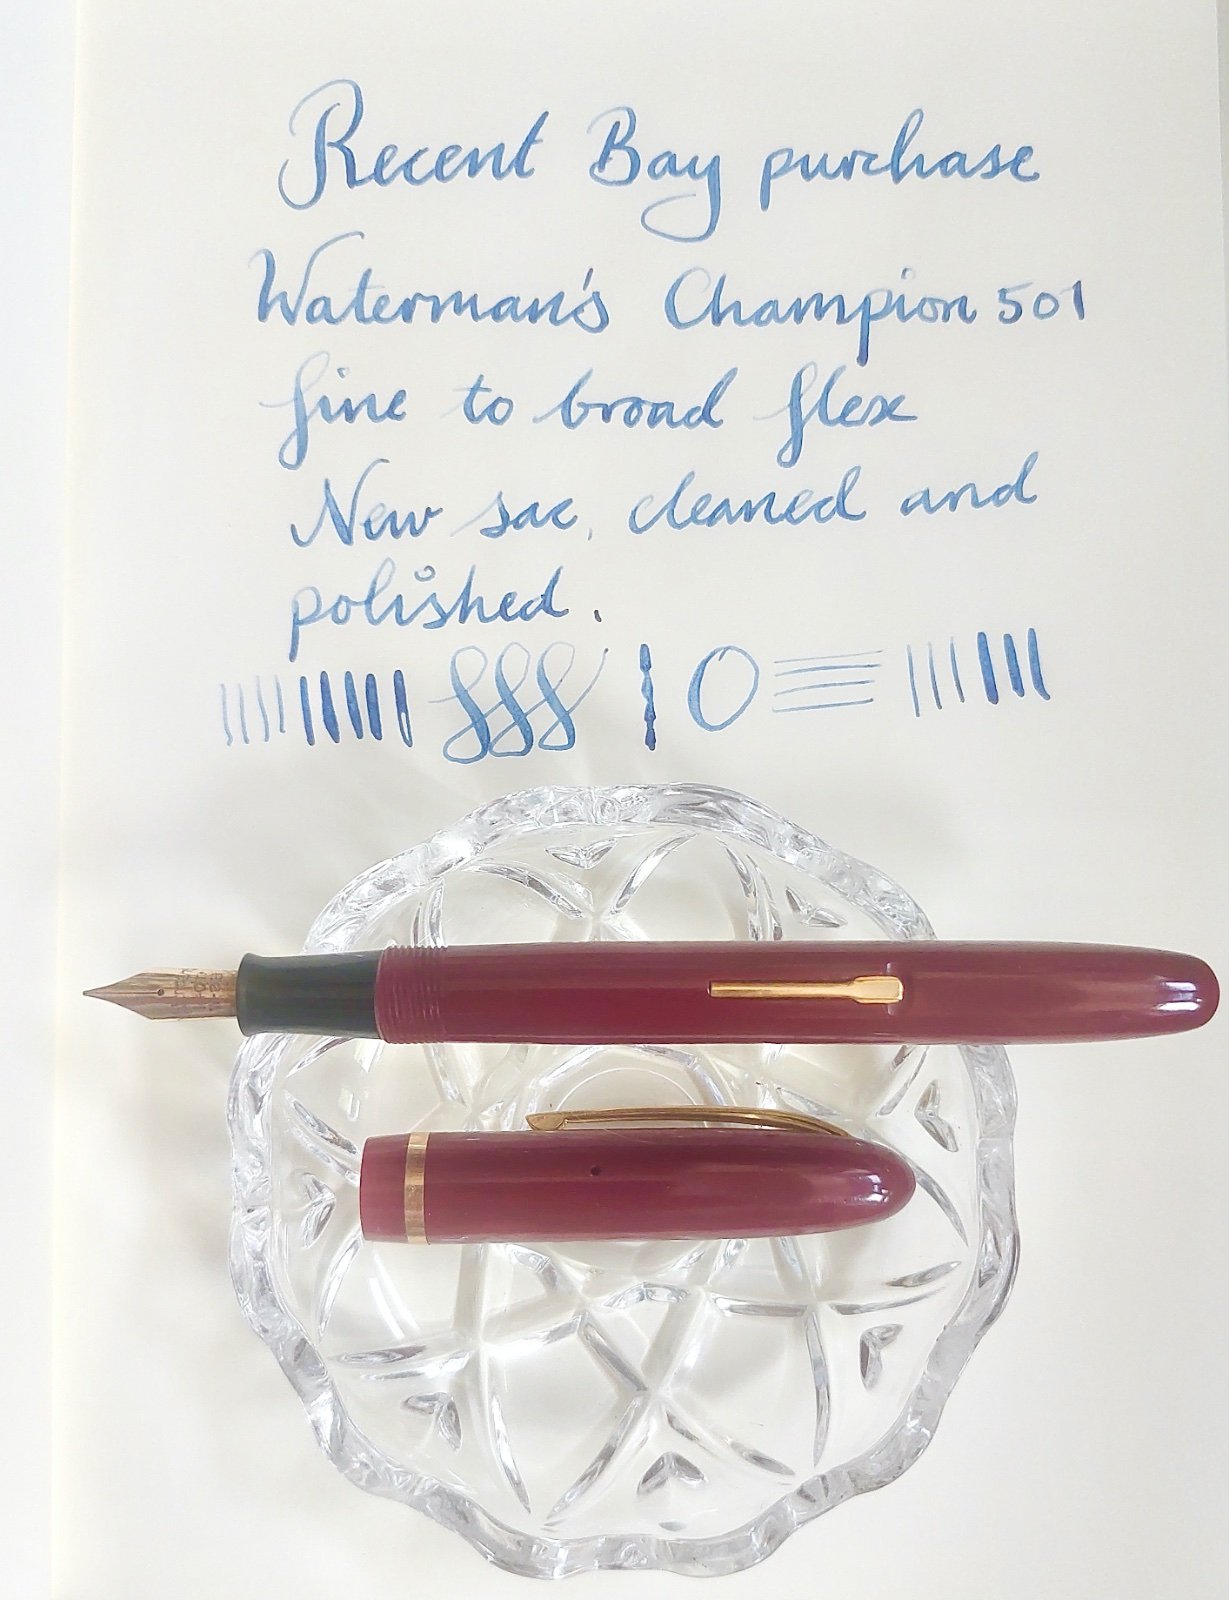 Recent Bay purchase
Waterman's Champion 501
fine to broad flex
New sac, cleaned and
polished.